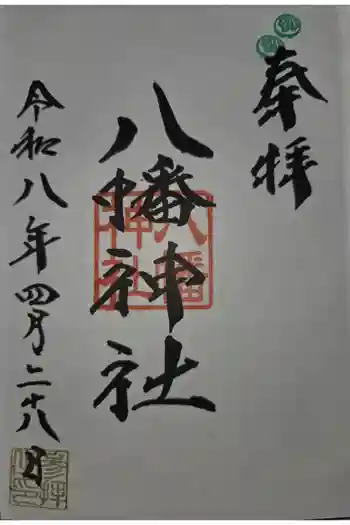 奉拝
八幡神社
八幡神社
令和八年四月二十八日
参拝